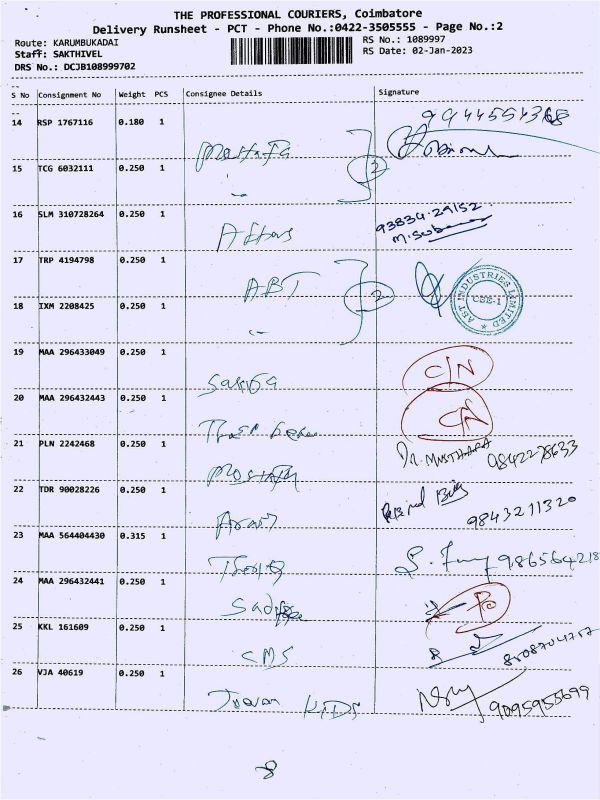 THE PROFESSIONAL COURIERS, Coimbatore
Delivery Runsheet - PCT - Phone No.:0422-3505555 - Page No.:2
Route: KARUMBUKADAI
RS No.: 1089997
Staff: SAKTHIVEL
RS Date: 02-Jan-2023
DRS No.: DCJB108999702
S No Consignment No Weight PCS Consignee Details Signature
14 RSP 1767116 0.180 1
Mostafa 2
15 TCG 6032111 0.250 1
16 SLM 310728264 0.250 1
93834.29152
17 TRP 4194798 0.250 1
ABT 2
ABT INDUSTRIES LIMITED CBE-1
18 IXM 2208425 0.250 1
19 MAA 296433049 0.250 1
C/N
20 MAA 296432443 0.250 1
C/N
21 PLN 2242468 0.250 1
Dr. MUSTHAFA
22 TDR 90028226 0.250 1
9843211320
23 MAA 564404430 0.315 1
24 MAA 296432441 0.250 1
25 KKL 161609 0.250 1
CMS
26 VJA 40619 0.250 1
KIDS 9095955699
8